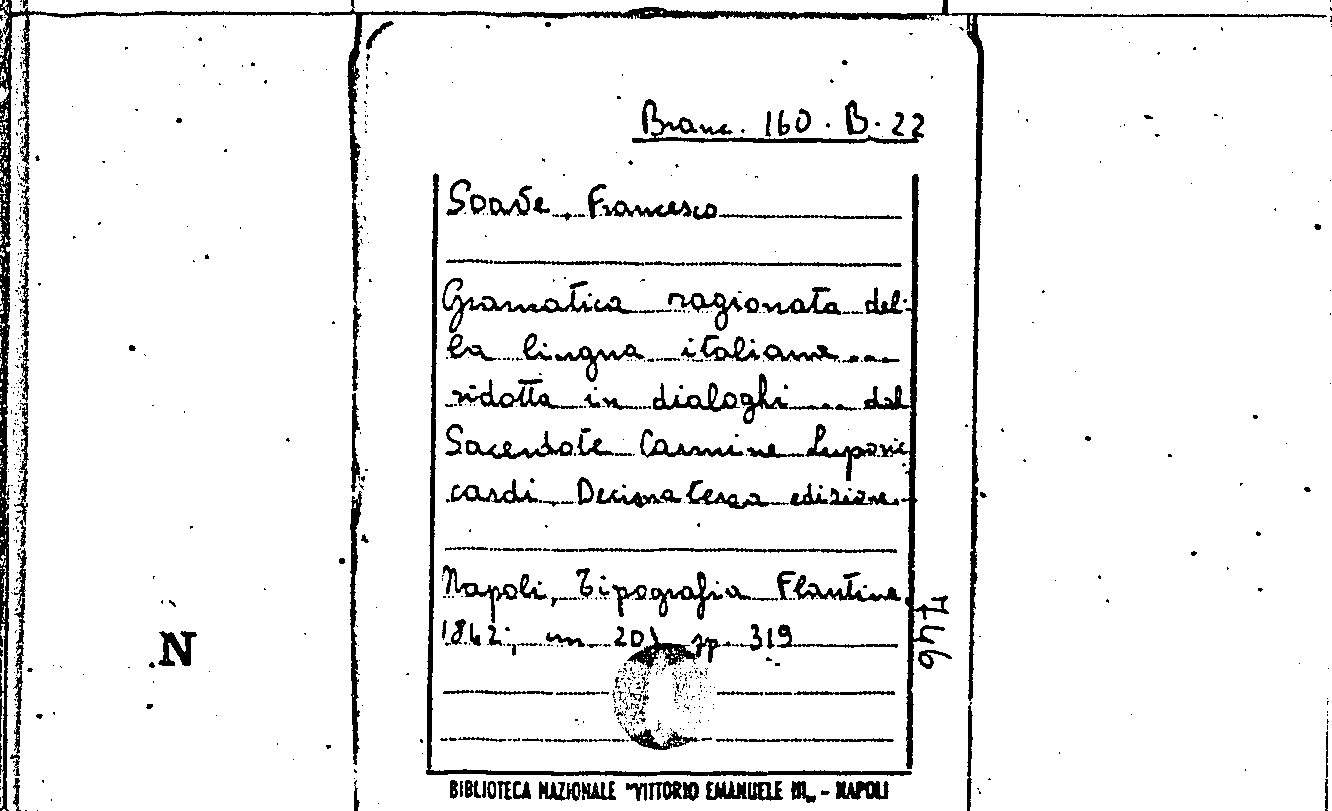 Branc. 160. B. 22
Soave, Francesco
Gramatica ragionata del-
la lingua italiana...
ridotta in dialoghi .... dal
Sacerdote Carmine
cardi. Decimaterza edizione.
Napoli, Tipografia Flautina,
1842; in 20) pp. 319
746
N
BIBLIOTECA NAZIONALE "VITTORIO EMANUELE III„ - NAPOLI